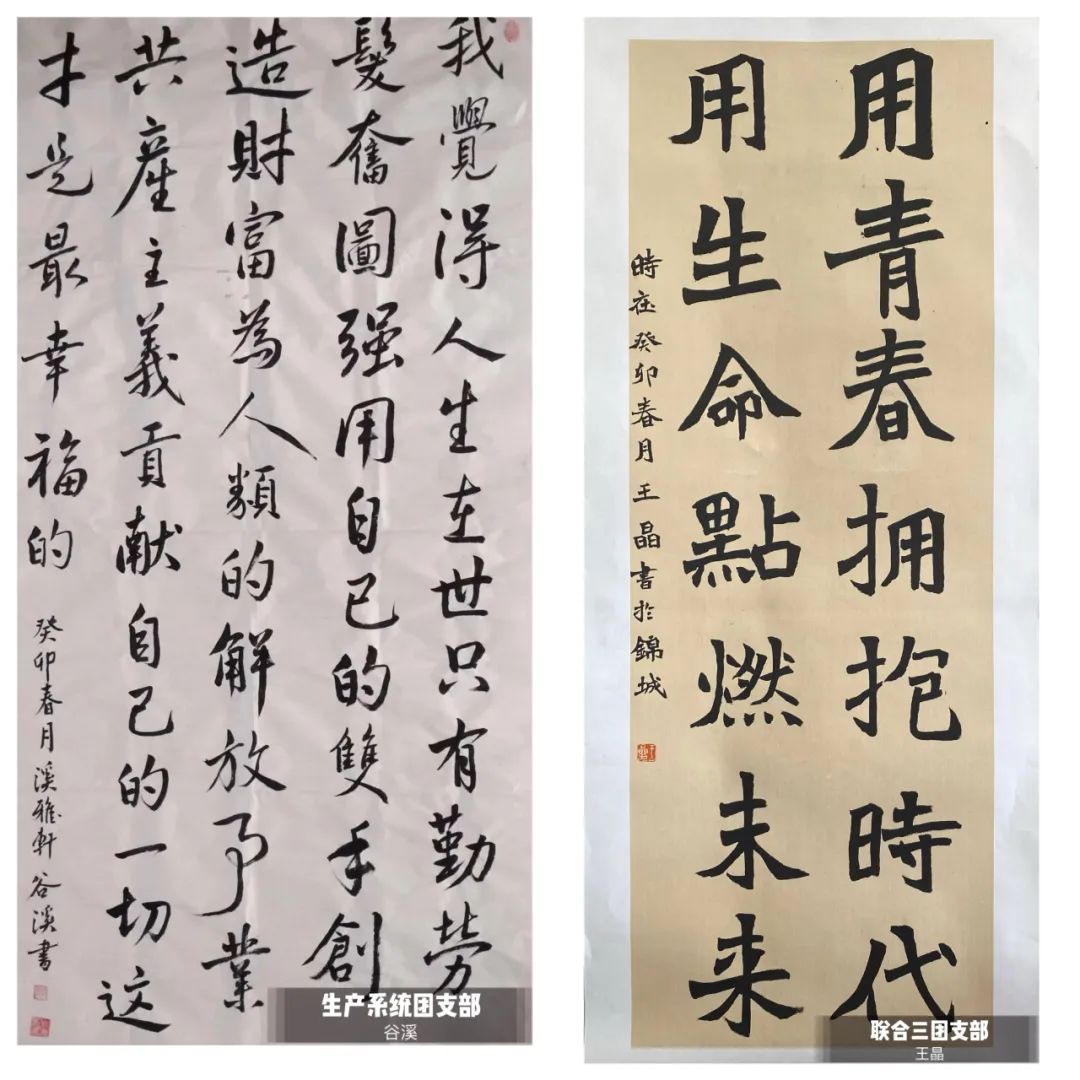 我覺得人生在世只有勤劳
髮奮圖强用自己的雙手創
造財富為人類的解放事業
共産主義貢献自己的一切这
才是最幸福的
癸卯春月溪雅軒谷溪書
生产系统团支部
谷溪
用青春拥抱時代
用生命點燃未来
時在癸卯春月王晶書於錦城
联合三团支部
王晶